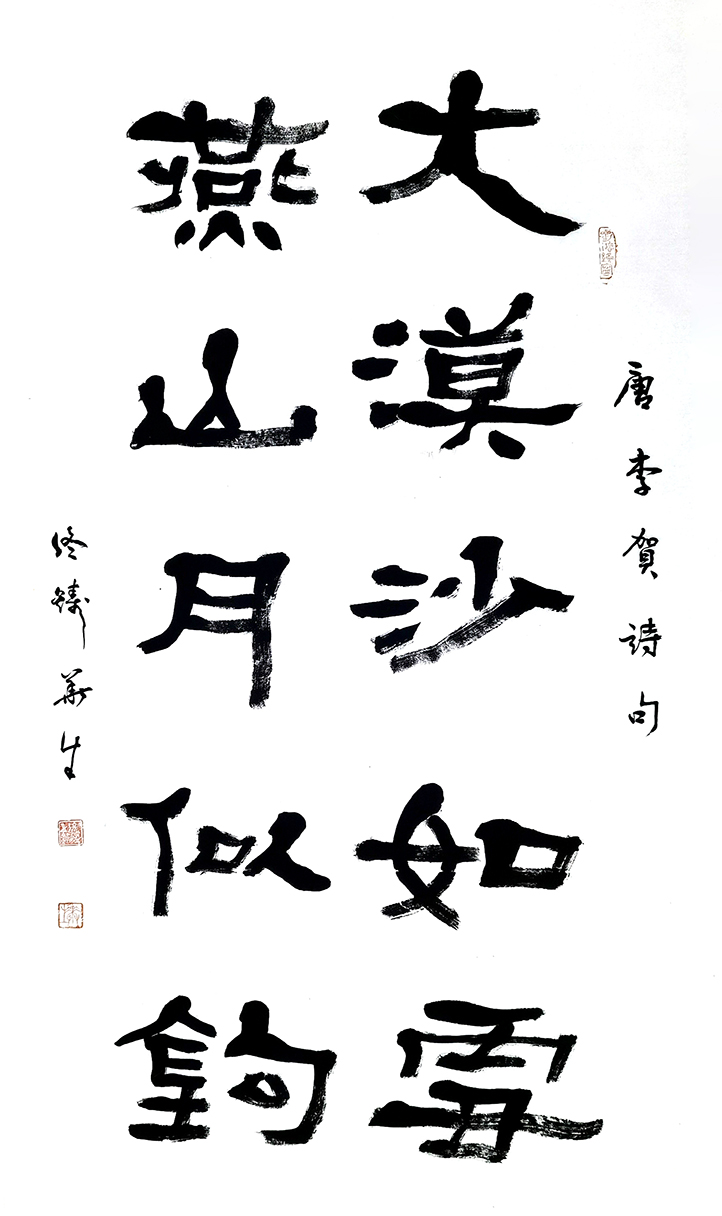 大漠沙如雪
燕山月似鈎
唐李賀詩句
華生